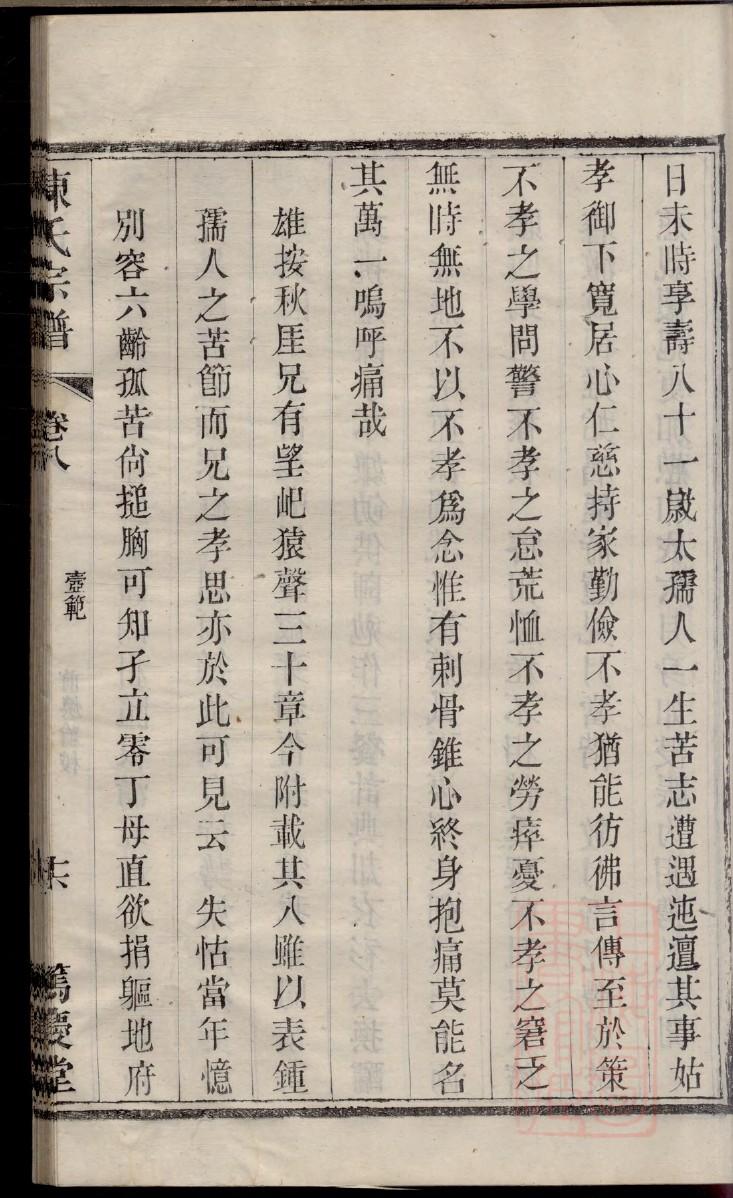 日未時享壽八十一歲太孺人一生苦志遭遇迍邅其事姑
孝御下寬居心仁慈持家勤儉不孝猶能彷彿言傳至於策
不孝之學問警不孝之怠荒恤不孝之勞瘁憂不孝之窘乏
無時無地不以不孝爲念惟有刺骨錐心終身抱痛莫能名
其萬一嗚呼痛哉
雄按秋厓兄有望屺猿聲三十章今附載其八雖以表鍾
孺人之苦節而兄之孝思亦於此可見云 失怙當年憶
別容六齡孤苦尙搥胸可知孑立零丁母直欲捐軀地府
陳氏宗譜 卷八 壼範 篤慶堂